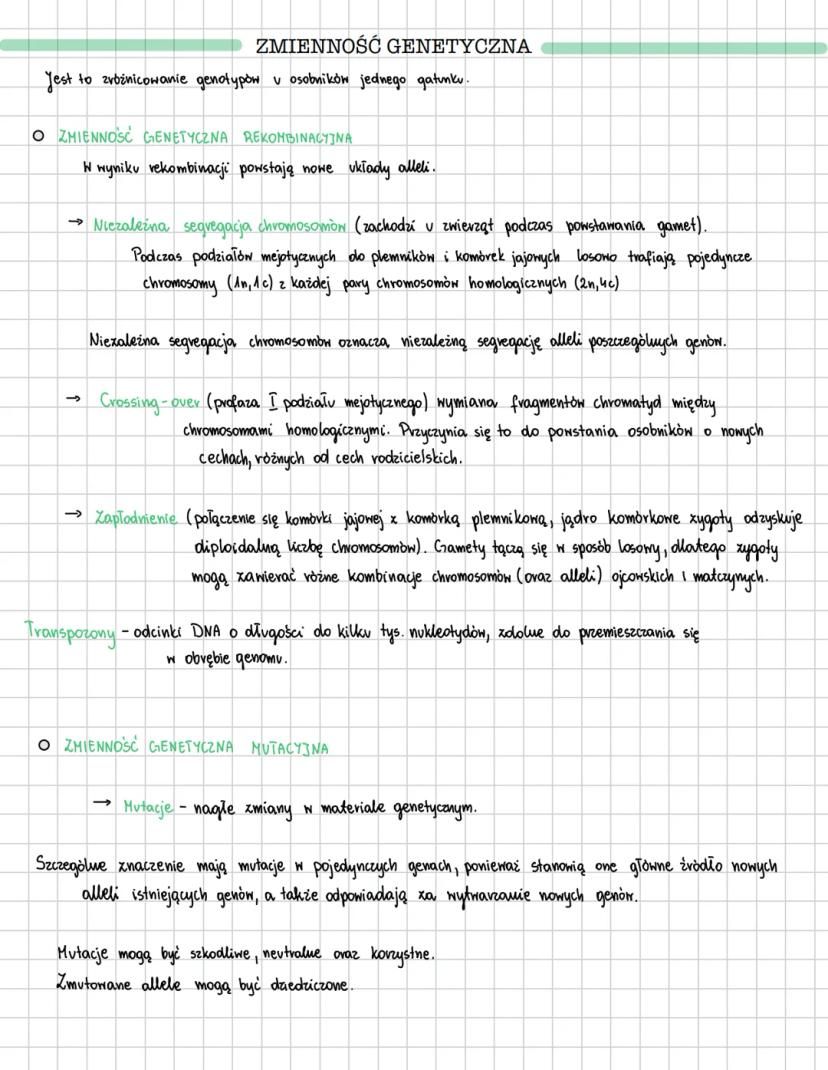 ZMIENNOŚĆ GENETYCZNA
Jest to zróżnicowanie genotypów u osobników jednego gatunku.
ZMIENNOŚĆ GENETYCZNA REKOMBINACYJNA
W wyniku rekombinacji powstają nowe układy alleli.
→ Niezależna segregacja chromosomów (zachodzi u zwierząt podczas powstawania gamet).
Podczas podziałów mejotycznych do plemników i komórek jajowych losowo trafiają pojedyncze
chromosomy (1n, 1c) z każdej pary chromosomów homologicznych (2n, 4c)
Niezależna segregacja chromosomów oznacza niezależną segregację alleli poszczególnych genów.
→ Crossing-over (profaza I podziału mejotycznego) wymiana fragmentów chromatyd między
chromosomami homologicznymi. Przyczynia się to do powstania osobników o nowych
cechach, różnych od cech rodzicielskich.
→ Zapłodnienie (połączenie się komórki jajowej z komórką plemnikową, jądro komórkowe zygoty odzyskuje
diploidalną liczbę chromosomów). Gamety łączą się w sposób losowy, dlatego zygoty
mogą zawierać różne kombinacje chromosomów (oraz alleli) ojcowskich i matczynych.
Transpozony - odcinki DNA o długości do kilku tys. nukleotydów, zdolne do przemieszczania się
w obrębie genomu.
ZMIENNOŚĆ GENETYCZNA MUTACYJNA
→ Mutacje - nagłe zmiany w materiale genetycznym.
Szczególne znaczenie mają mutacje w pojedynczych genach, ponieważ stanowią one główne źródło nowych
alleli istniejących genów, a także odpowiadają za wytwarzanie nowych genów.
Mutacje mogą być szkodliwe, neutralne oraz korzystne.
Zmutowane allele mogą być dziedziczone.